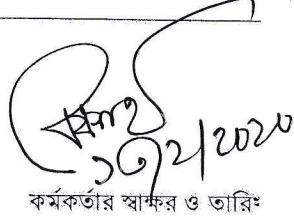 ১৩/২/২০২০
কর্মকর্তার স্বাক্ষর ও তারিঃ